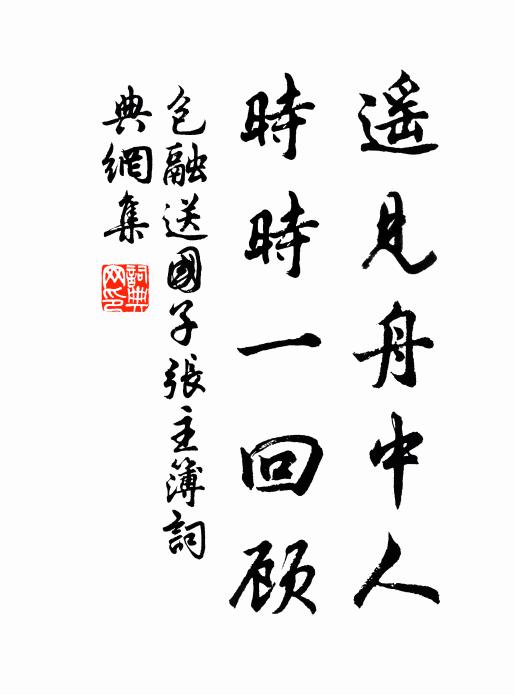 遥見舟中人
時時一回顾
包融送國子張主簿詞
典網集
詞典网印